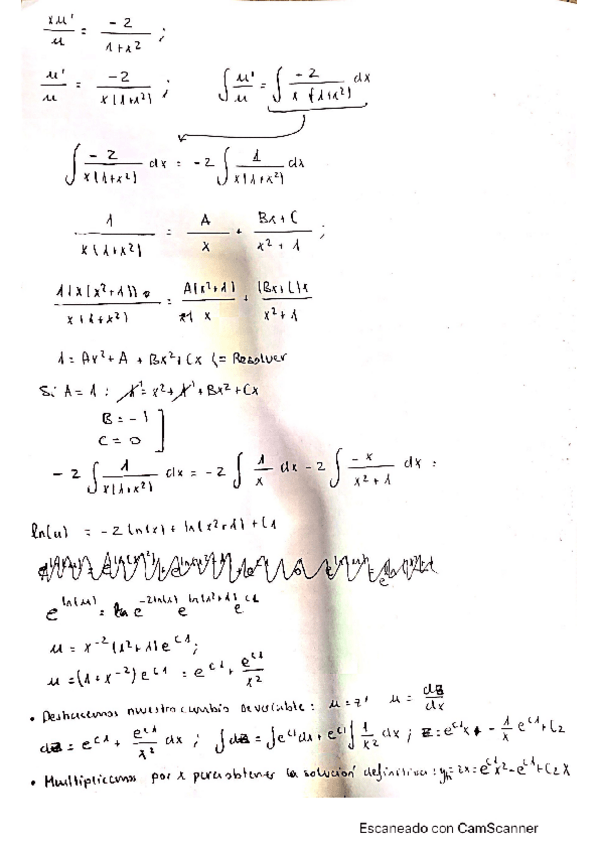 xu'/u = -2/(1+x²) ;
u'/u = -2/(x(1+x²)) ; ∫ u'/u = ∫ -2/(x(1+x²)) dx
∫ -2/(x(1+x²)) dx = -2 ∫ 1/(x(1+x²)) dx
1/(x(1+x²)) = A/x + (Bx+C)/(x²+1) ;
= A(x²+1)/x + (Bx+C)x/(x²+1)
1 = Ax²+A + Bx²+Cx (= Resolver
Si A=1 : 1 = x²+1+Bx²+Cx
B = -1
C = 0
-2 ∫ 1/(x(1+x²)) dx = -2 ∫ 1/x dx -2 ∫ -x/(x²+1) dx =
ln(u) = -2 ln(x) + ln(x²+1) + C1
e^ln(u) = e^-2ln(x) e^ln(x²+1) e^C1
u = x^-2 (x²+1) e^C1 ;
u = (1+x^-2) e^C1 = e^C1 + e^C1/x²
• Deshacemos nuestro cambio de variable : u = z' u = dz/dx
dz = e^C1 + e^C1/x² dx ; ∫dz = ∫e^C1 dx + e^C1 ∫ 1/x² dx ; z = e^C1 x - 1/x e^C1 + C2
• Multiplicamos por x para obtener la solución definitiva : = zx = e^C1 x² - e^C1 + C2 x
Escaneado con CamScanner